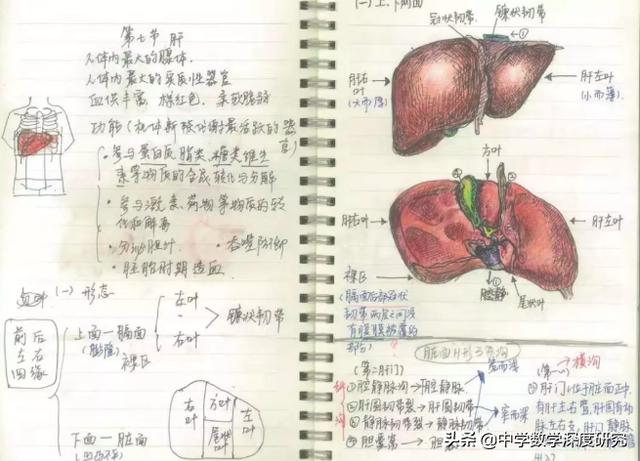 第七节 肝
人体内最大的腺体.
人体内最大的实质性器官
血供丰富, 棕红色, 柔软脆弱
功能(机体新陈代谢最活跃的器官)
· 参与蛋白质, 脂类, 糖类维生
素等物质的合成, 转化与分解
· 参与激素, 药物等物质的转
化和解毒
· 分泌胆汁 · 吞噬防御
· 胚胎时期造血
(一) 形态
左叶
右叶
镰状韧带
前后
左右
四缘
上面一膈面
(膨隆)
裸区
下面一脏面
右叶
方叶
尾状叶
左叶
(一) 上、下两面
冠状韧带
镰状韧带
肝右叶
(大而厚)
肝左叶
(小而薄)
方叶
肝右叶
肝左叶
裸区
尾状叶
(膈面后部冠状
韧带两层之间没
有腹膜覆盖的
部分)
脏面H形三条沟
(第二肝门)
窄而深
横沟
腔静脉沟→下腔静脉
肝圆韧带裂→肝圆韧带
静脉韧带裂→静脉韧带
胆囊窝→胆囊
①肝门: 位于脏面正中
有肝左右管, 肝固有动
脉左右支, 肝门静脉
头条 @中学数学深度研究